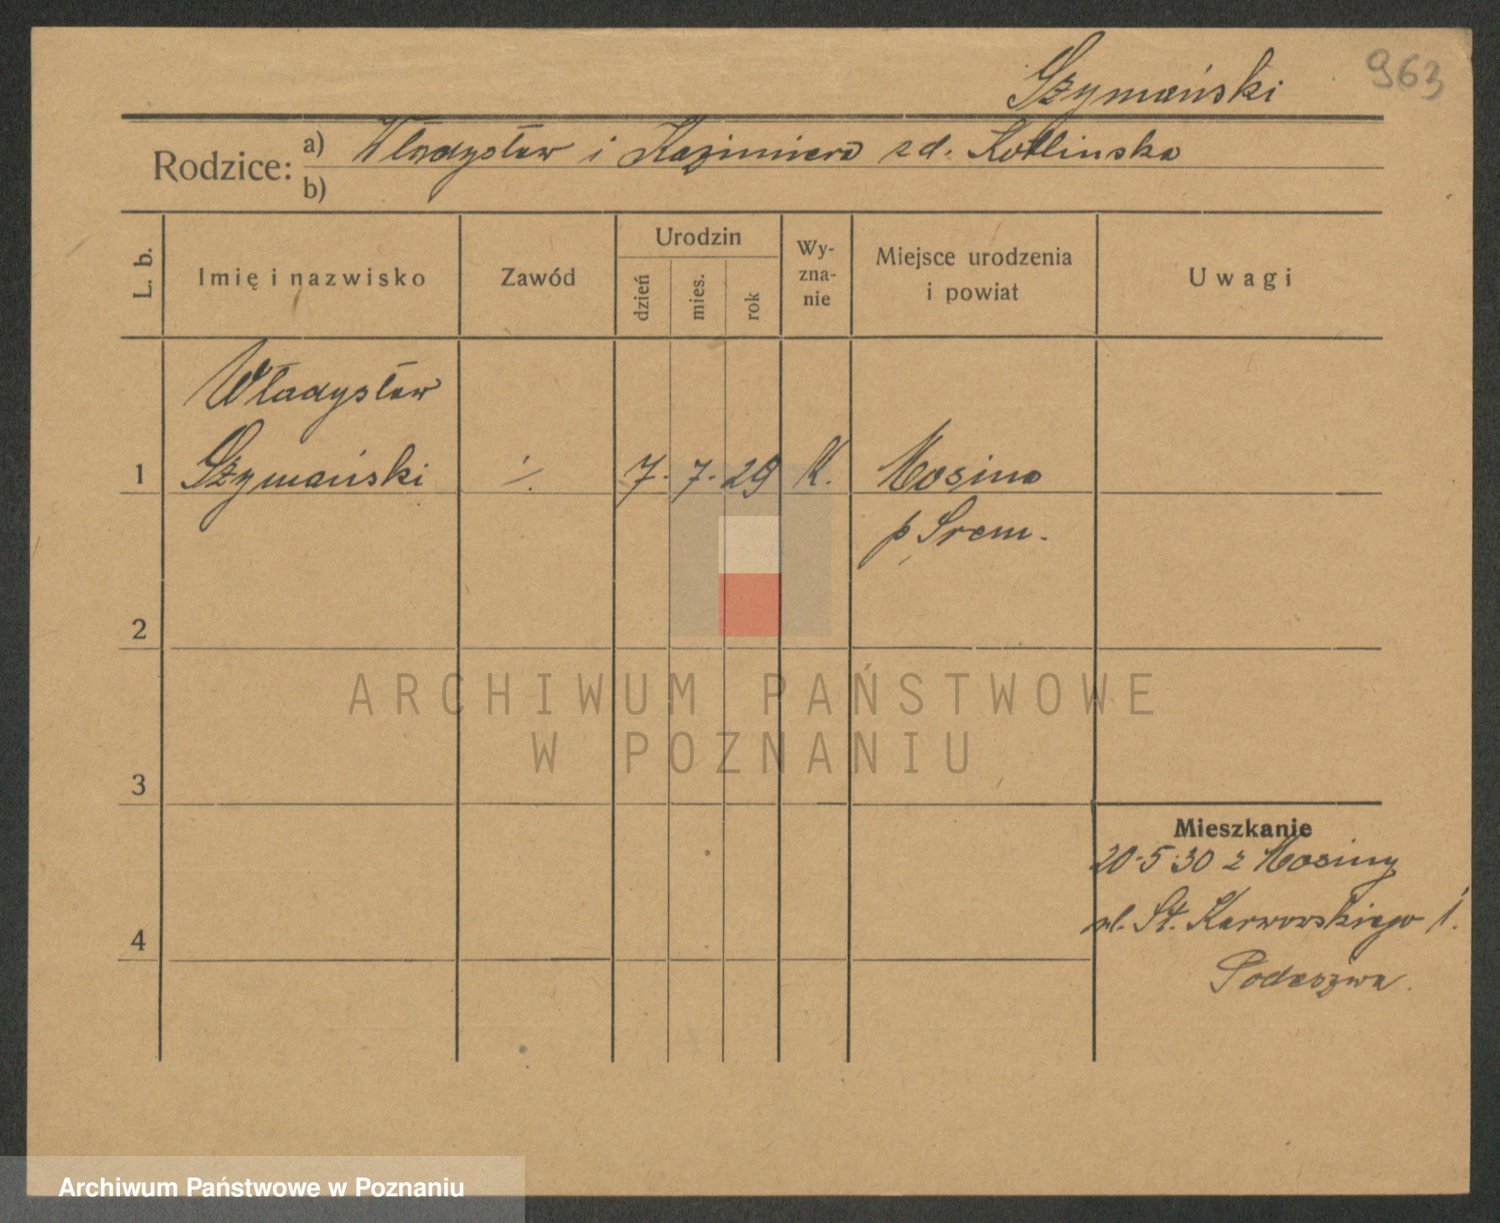 Szymański
963
Rodzice: a) Władysław i Kazimiera zd. Kotlinska
b)
L. b.
Imię i nazwisko
Zawód
Urodzin
dzień
mies.
rok
Wy-
zna-
nie
Miejsce urodzenia
i powiat
Uwagi
Władysław
1 Szymański ./. 7. 7. 29 K. Mosina
p Śrem.
2
ARCHIWUM PAŃSTWOWE
W POZNANIU
3
Mieszkanie
20.5.30 z Mosiny
ul. St. Karwowskiego 1.
4
Podeszwa.
Archiwum Państwowe w Poznaniu